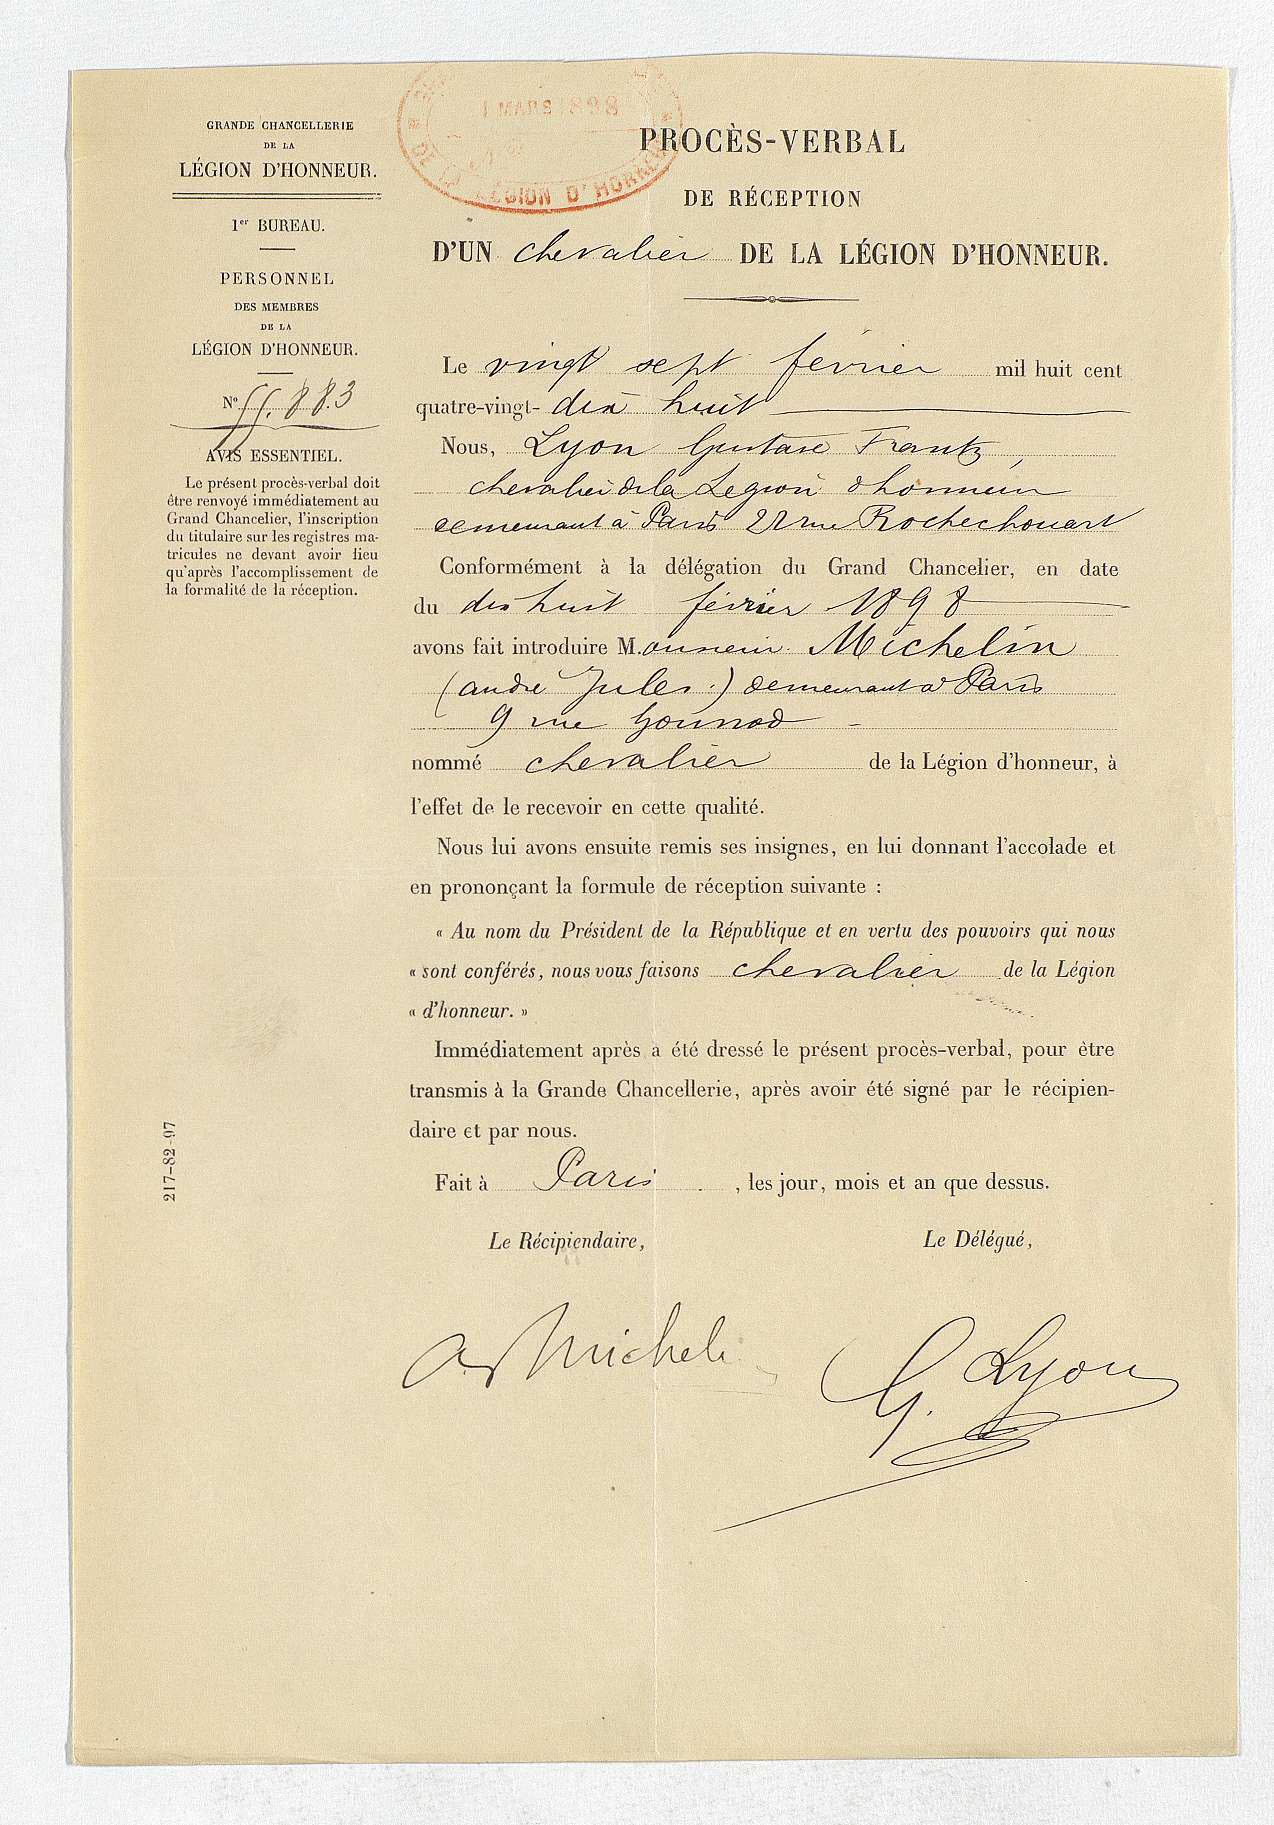 GRANDE CHANCELLERIE
DE LA
LÉGION D'HONNEUR.
1er BUREAU.
PERSONNEL
DES MEMBRES
DE LA
LÉGION D'HONNEUR.
No 55.883
AVIS ESSENTIEL.
Le présent procès-verbal doit
être renvoyé immédiatement au
Grand Chancelier, l'inscription
du titulaire sur les registres ma-
tricules ne devant avoir lieu
qu'après l'accomplissement de
la formalité de la réception.
217-82-97
1 MARS 1898
DE LA LÉGION D'HONNEUR
PROCÈS-VERBAL
DE RÉCEPTION
D'UN chevalier DE LA LÉGION D'HONNEUR.
Le vingt sept février mil huit cent
quatre-vingt- dix huit
Nous, Lyon Gustave Frantz,
chevalier de la Legion d'honneur
demeurant à Paris 22 rue Rochechouart
Conformément à la délégation du Grand Chancelier, en date
du dix huit février 1898
avons fait introduire M.onsieur Michelin
(andre Jules) demeurant à Paris
9 rue Gounod
nommé chevalier de la Légion d'honneur, à
l'effet de le recevoir en cette qualité.
Nous lui avons ensuite remis ses insignes, en lui donnant l'accolade et
en prononçant la formule de réception suivante :
« Au nom du Président de la République et en vertu des pouvoirs qui nous
« sont conférés, nous vous faisons chevalier de la Légion
« d'honneur. »
Immédiatement après a été dressé le présent procès-verbal, pour être
transmis à la Grande Chancellerie, après avoir été signé par le récipien-
daire et par nous.
Fait à Paris, les jour, mois et an que dessus.
Le Récipiendaire, Le Délégué,
A. Michelin G. Lyon